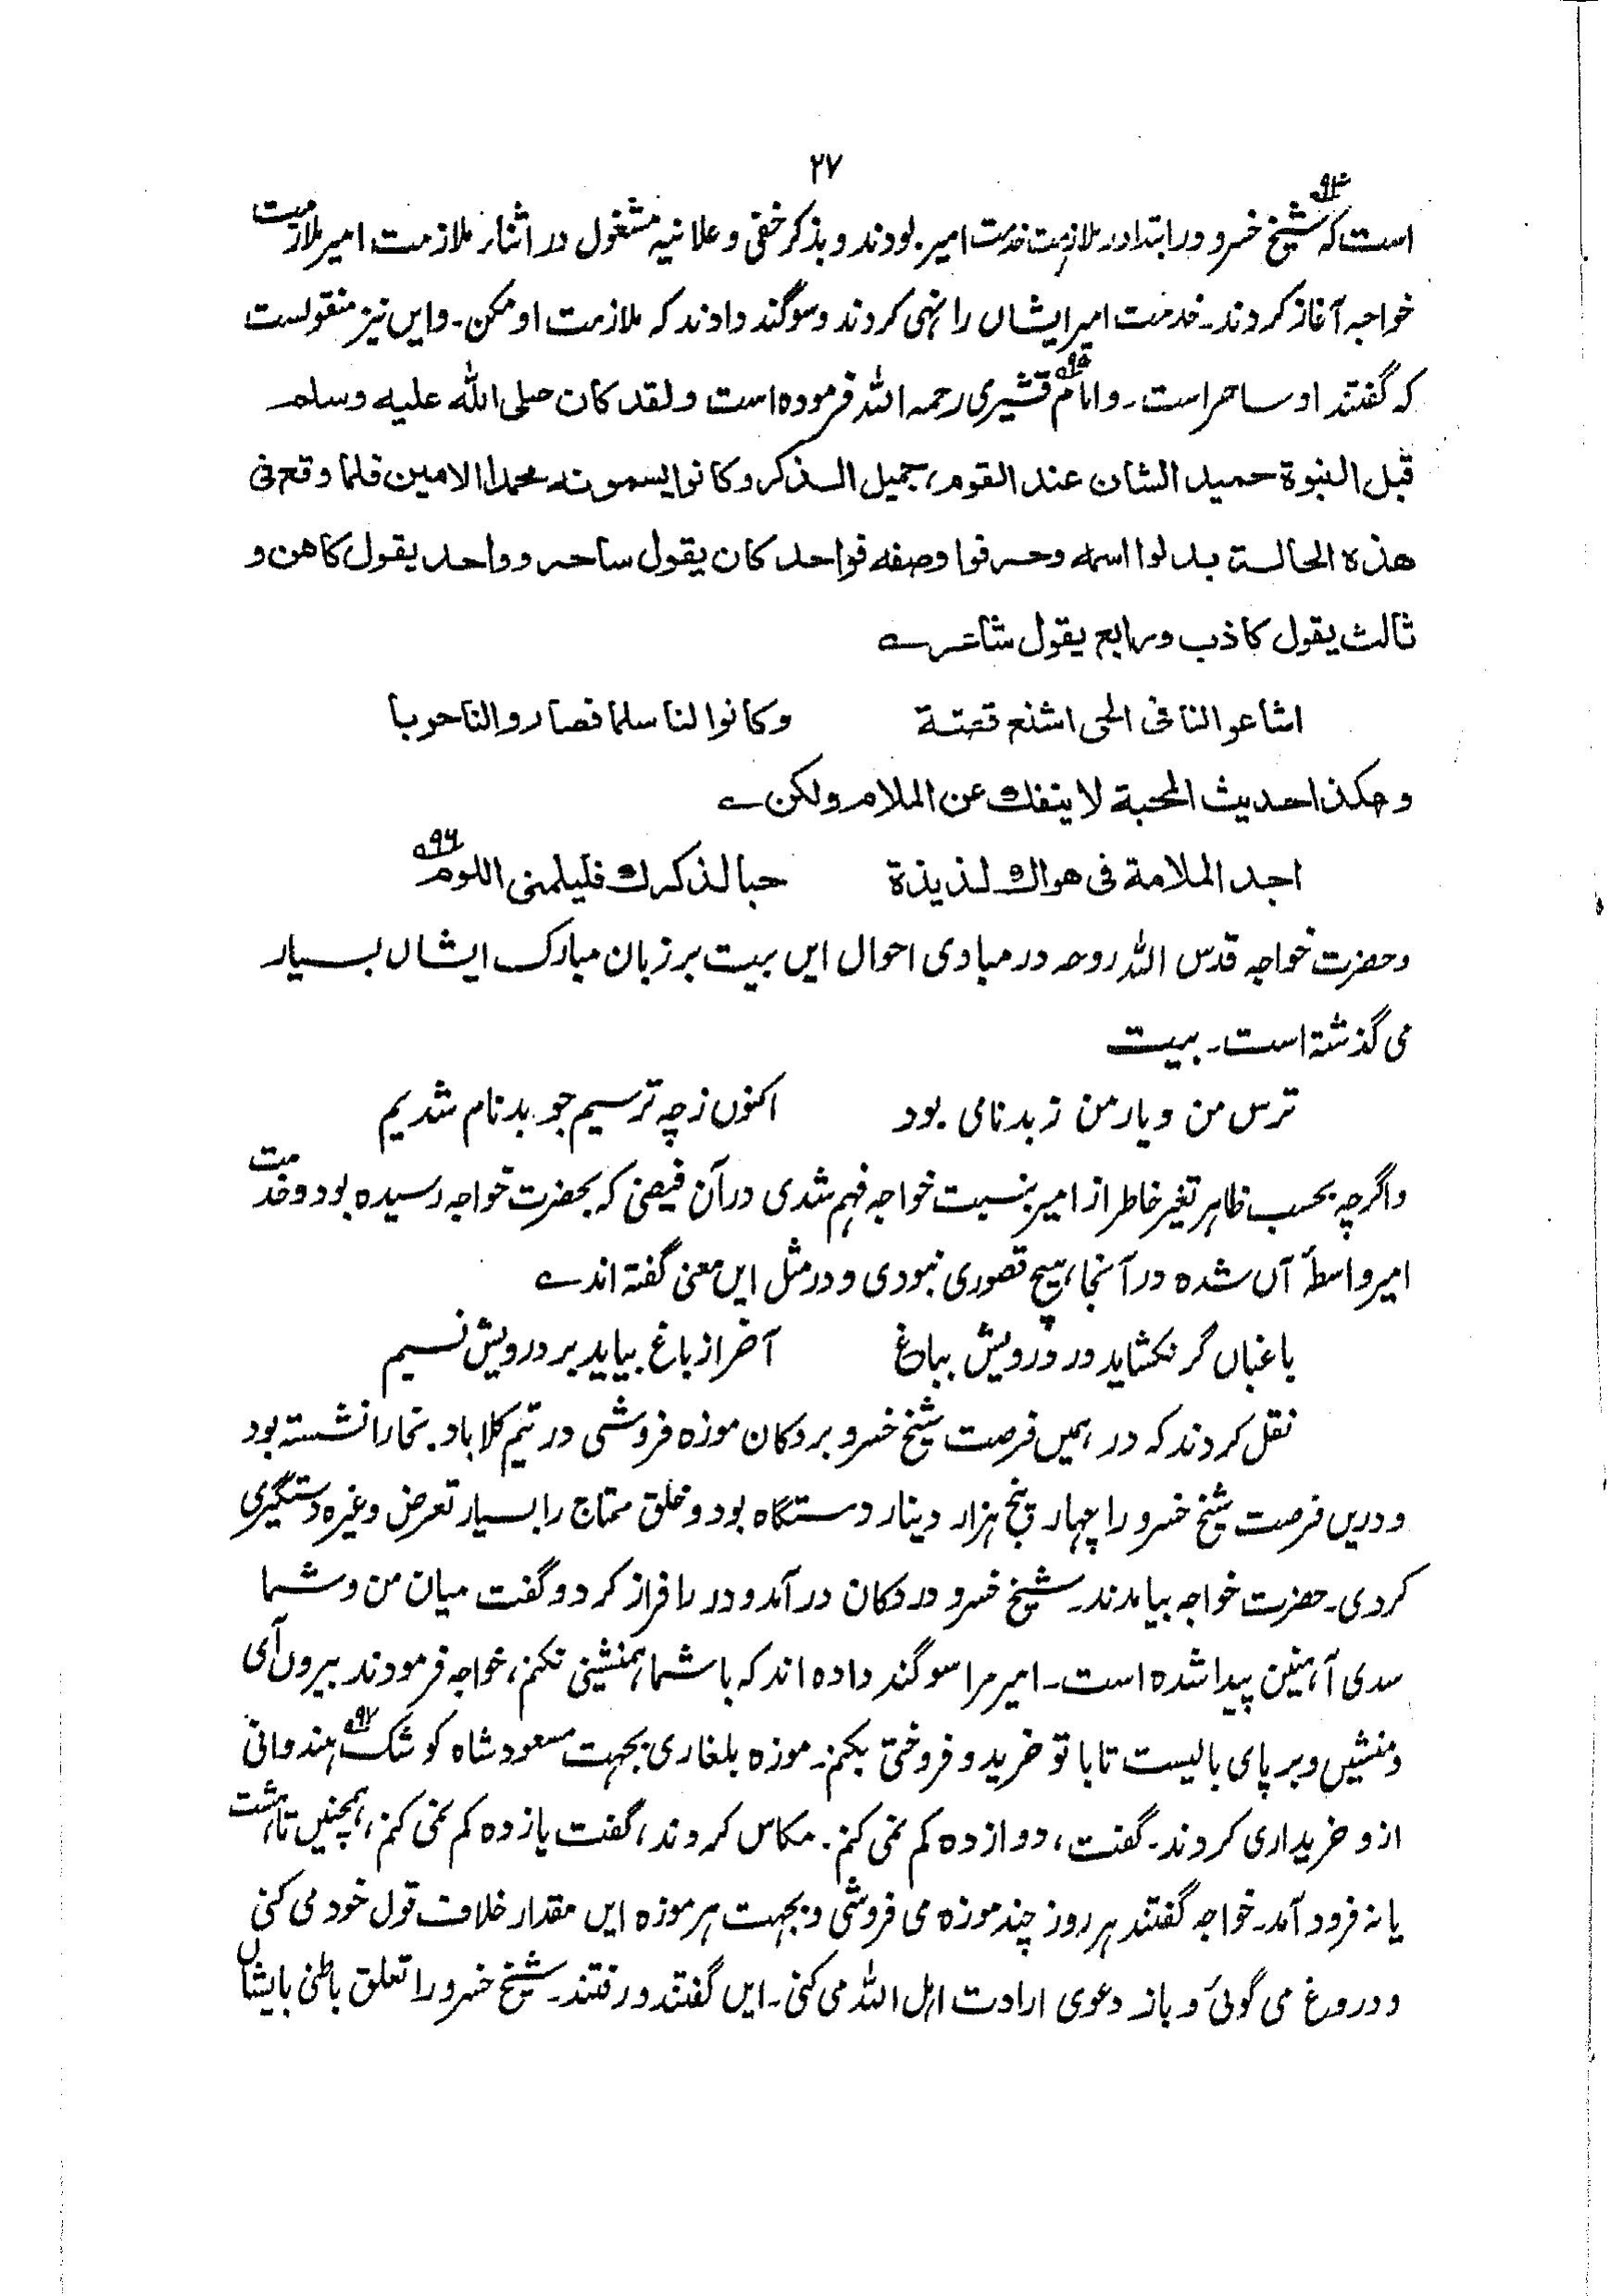 ۲۷
است که شیخ خسرو در ابتدا در ملازمت خدمت امیر بودند و بذکر خفی و علانیه مشغول در اثنار ملازمت امیر ملازمت
خواجه آغاز کردند۔ خدمت امیر ایشاں را نہی کردند و سوگند دادند که ملازمت او مکن۔ و ایں نیز منقولست
که گفتند او ساحر است۔ و امام قشیری رحمہ اللہ فرموده است ولقد کان صلی اللہ علیہ وسلم
قبل النبوة حمید الشان عند القوم، جمیل الذکر و کانوا یسمونہ محمدا الامین فلما وقع فی
هذہ الحالة بدلوا اسمہ وحرفوا وصفہ فواحد کان یقول ساحر و واحد یقول کاهن و
ثالث یقول کاذب و رابع یقول شاعر ؎
اشاعوا لنا فی الحی اشنع قصة وکانوا لنا سلما فصاروا لنا حربا
وهکذا حدیث المحبة لا ینفک عن الملام ولکن ؎
اجد الملامة فی هواک لذیذة حبا لذکرک فلیلمنی اللوم ۹۶
وحضرت خواجه قدس اللہ روحہ در مبادی احوال ایں بیت بر زبان مبارک ایشاں بسیار
می گذشتہ است۔ بیت
ترس من و یار من ز بدنامی بود اکنوں زچہ ترسیم چو بدنام شدیم
و اگرچہ بحسب ظاہر تغیر خاطر از امیر بنسبت خواجہ فہم شدی در آن فیضی کہ بحضرت خواجہ رسیدہ بود و خدمت
امیر واسطہ آں شدہ در آنجا ہیچ قصوری نبودی و در مثل ایں معنی گفتہ اند ؎
باغباں گر نکشاید در درویش بباغ آخر از باغ بیاید بر درویش نسیم
نقل کردند کہ در ہمیں فرصت شیخ خسرو بر دکان موزہ فروشی در تیم کلاباد بخارا نشستہ بود
و دریں فرصت شیخ خسرو را چہار پنج ہزار دینار دستگاہ بود و خلق محتاج را بسیار تعرض وغیرہ دستگیری
کردی۔ حضرت خواجہ بیامدند۔ شیخ خسرو در دکان در آمد و در را فراز کرد و گفت میان من و شما
سدی آہنین پیدا شدہ است۔ امیر مرا سوگند دادہ اند کہ با شما ہمنشینی نکنم، خواجہ فرمودند بیروں آی
ومنشیں و بر پای بالیست تا با تو خرید و فروختی بکنم۔ موزہ بلغاری بجہت مسعود شاہ کوشک ۹۷ ہندوانی
ازو خریداری کردند۔ گفت، دوازدہ کم نمی کنم۔ مکاس کردند، گفت یازدہ کم نمی کنم، ہمچنیں تا ہشت
یا نہ فرود آمد۔ خواجہ گفتند ہر روز چند موزہ می فروشی و بجہت ہر موزہ ایں مقدار خلاف قول خود می کنی
و دروغ می گوئی و باز دعوی ارادت اہل اللہ می کنی۔ ایں گفتند و رفتند۔ شیخ خسرو را تعلق باطنی بایشاں